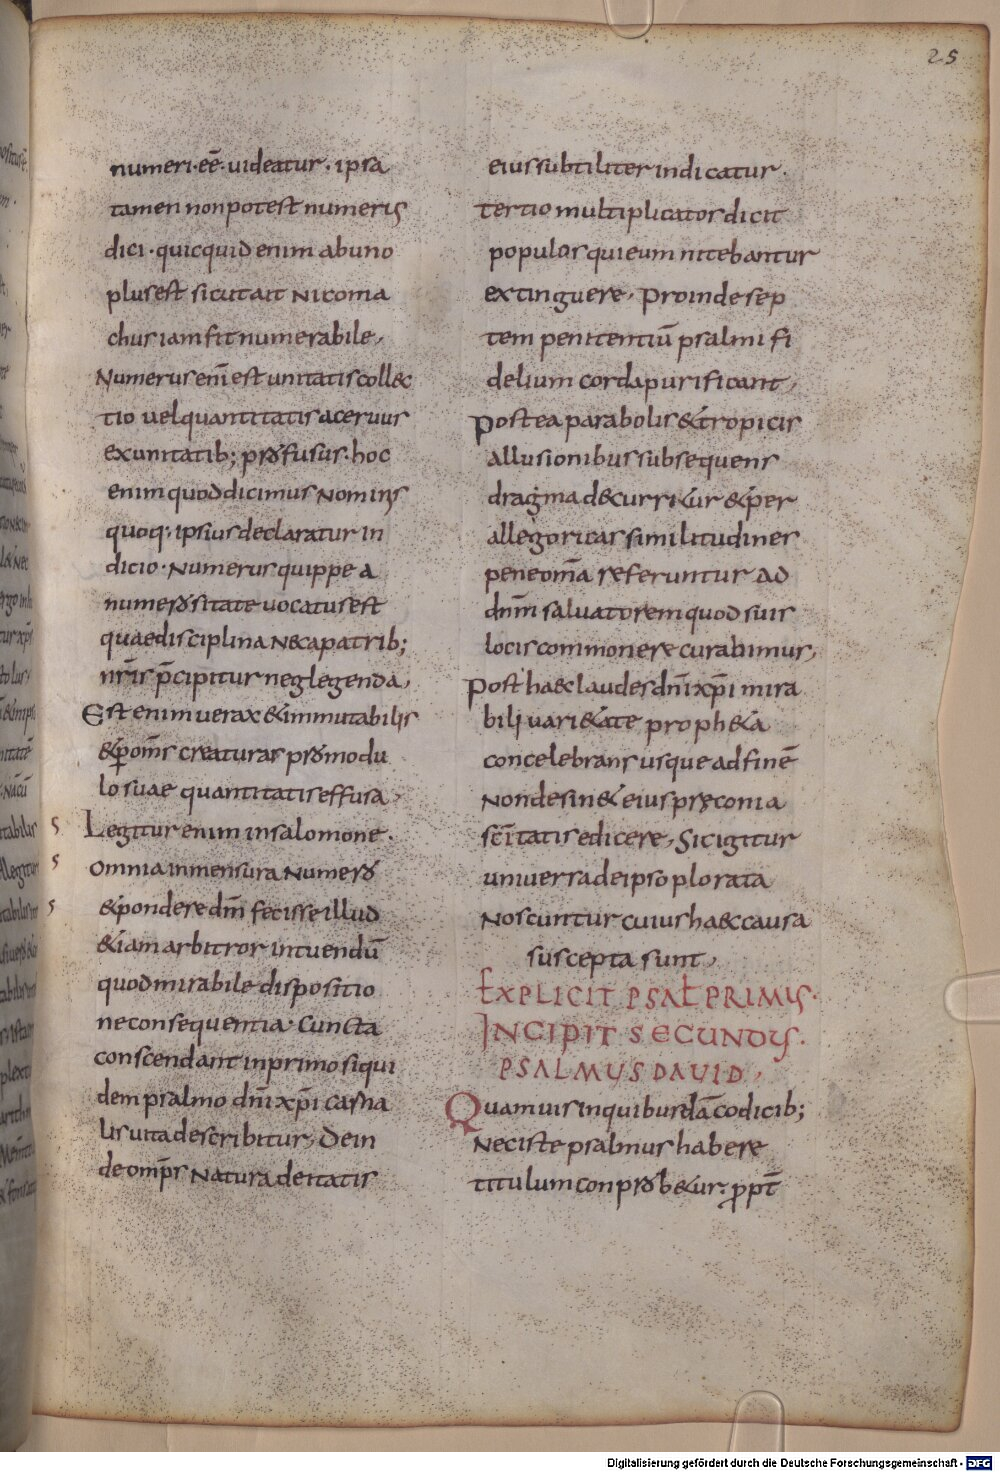 25
numeri·eē·uideatur·ipsa
tamen non potest numeris
dici·quicquid enim ab uno
plus est sicut ait Nicoma
chus iam fit numerabile,
Numerus enī est unitatis coll&c
tio uel quantitatis aceruus
ex unitatib; profusus·hoc
enim quod dicimus Nominis
quoq; ipsius declaratur in
dicio·Numerus quippe a
numerositate uocatus est
quae disciplina Nec a patrib;
nr̄is p̄cipitur neglegenda,
Est enim uerax & immutabilis
& p om̄s creaturas pro modu
lo suae quantitatis effusa,
s Legitur enim in salomone·
s Omnia in mensura Numero
s & pondere dn̄m fecisse illud
&iam arbitror intuendū
quod mirabile dispositio
ne consequentia cuncta
conscendant in primo siqui
dem psalmo dn̄i xp̄i carna
lis uita describitur, Dein
de omp̄s Natura deitatis
eius subtiliter indicatur·
tertio multiplicatos dicit
populos qui eum nitebantur
extinguere, Proinde sep
tem penitentiū psalmi fi
delium corda purificant,
Postea parabolis & tropicis
allusionibus subsequens
dragma decurr&ur & per
allegoricas similitudines
pene om̄a referuntur ad
dn̄m saluatorem quod suis
locis commonere curabimus,
Post haec laudes dn̄i xp̄i mira
bili uari&ate proph&a
concelebrans usque ad finē
Non desin& eius pręconia
sc̄itatis edicere, Sic igitur
uniuersa de ipso plorata
Noscuntur cuius haec causa
suscepta sunt,
EXPLICIT PSAL PRIMUS·
INCIPIT SECUNDUS·
PSALMUS DAUID,
Quamuis in quibusdā codicib;
Nec iste psalmus habere
titulum conprob&ur·ppt̄
Digitalisierung gefördert durch die Deutsche Forschungsgemeinschaft - DFG